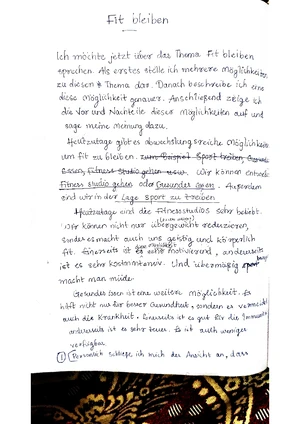 Fit bleiben
Ich möchte jetzt über das Thema Fit bleiben
sprechen. Als erstes stelle ich mehrere Möglichkeiten
zu diesen Thema dar. Danach beschreibe ich eine
diese Möglichkeit genauer. Anschließend zeige ich
die Vor und Nachteile dieser Möglichkeiten auf und
sage meine Meinung dazu.
Heutzutage gibt es abwechslungsreiche Möglichkeiten
um fit zu bleiben. zum Beispiel Sport treiben, Gesundes
Essen, Fitness Studio gehen usw. Wir können entweder
Fitness studio gehen oder Gesundes essen. Außerdem
sind wir in der Lage sport zu treiben
Heutzutage sind die Fitnessstudios sehr beliebt.
Wir können nicht nur übergewicht reduzieren,
sondern es macht auch uns geistig und körperlich
fit. Einerseits ist es sehr motivierend, anderseits
ist es sehr kostenintensiv. Und übermäßig sport
macht man müde.
Gesundes Essen ist eine weitere Möglichkeit. Es
hilft nicht nur für besser Gesundheit, sondern es
auch die Krankheit. Einerseits ist es gut für die
anderseits ist es sehr teuer. Es ist auch weniger
verfügbar
Persönlich schließe ich mich der Ansicht an, dass